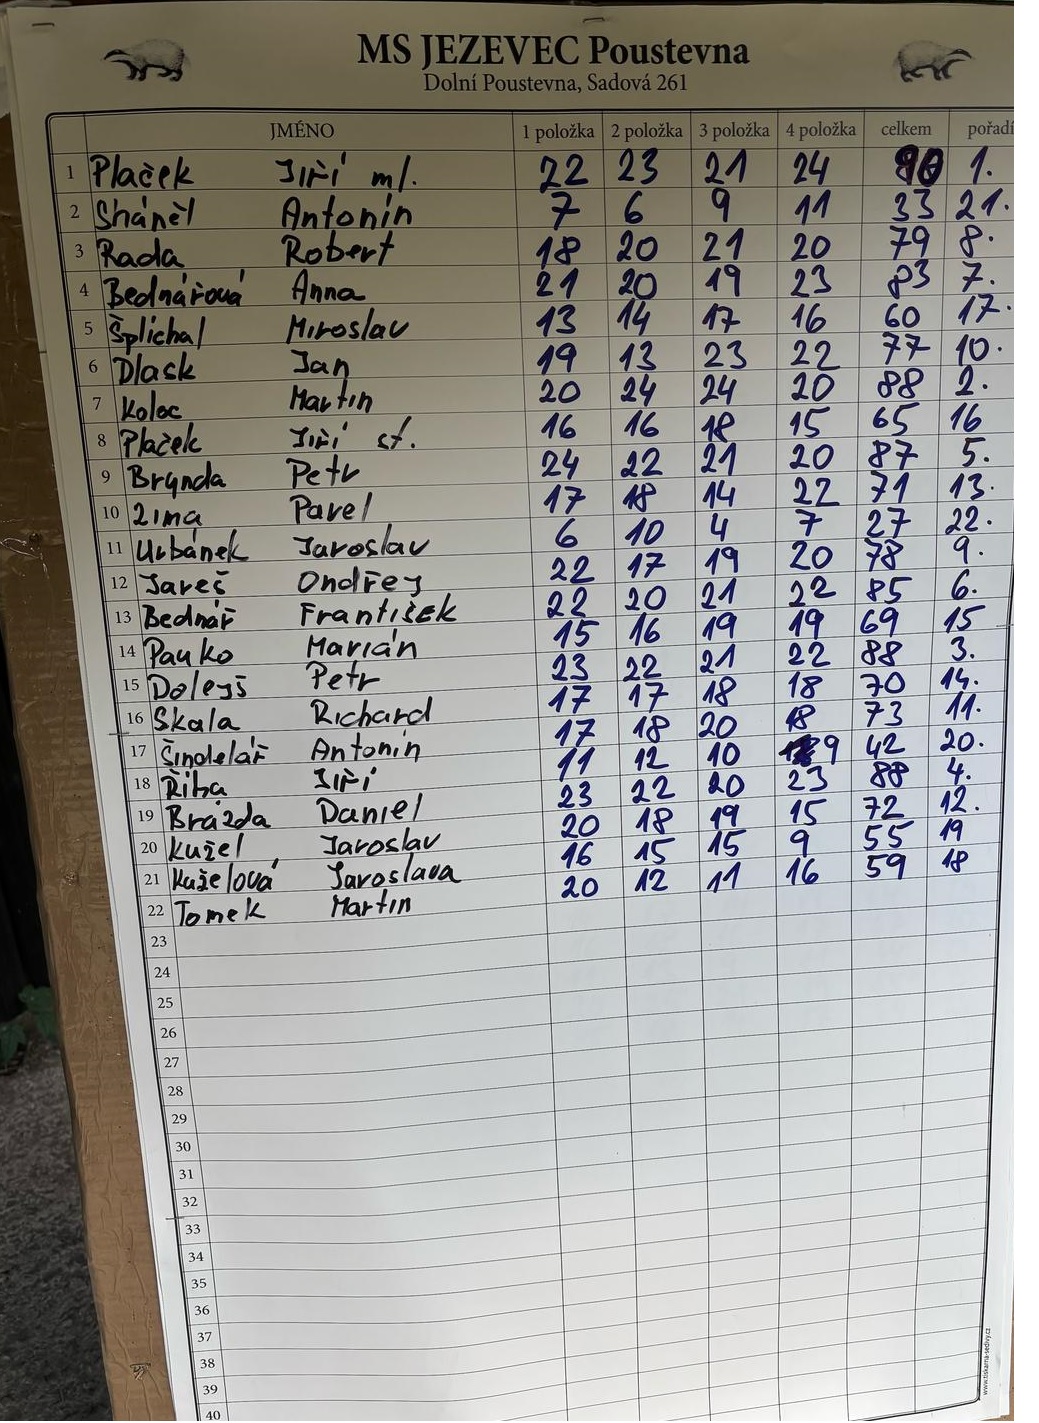 MS JEZEVEC Poustevna
Dolní Poustevna, Sadová 261
JMÉNO 1 položka 2 položka 3 položka 4 položka celkem pořadí
1 Plaček Jiří ml. 22 23 21 24 90 1.
2 Sháněl Antonín 7 6 9 11 33 21.
3 Rada Robert 18 20 21 20 79 8.
4 Bednářová Anna 21 20 19 23 83 7.
5 Šplíchal Miroslav 13 14 17 16 60 17.
6 Dlask Jan 19 13 23 22 77 10.
7 Koloc Martin 20 24 24 20 88 2.
8 Plaček Jiří st. 16 16 18 15 65 16
9 Brynda Petr 24 22 21 20 87 5.
10 Zima Pavel 17 18 14 22 71 13.
11 Urbánek Jaroslav 6 10 4 7 27 22.
12 Jareš Ondřej 22 17 19 20 78 9.
13 Bednář František 22 20 21 22 85 6.
14 Pauko Marián 15 16 19 19 69 15
15 Dolejš Petr 23 22 21 22 88 3.
16 Skala Richard 17 17 18 18 70 14.
17 Šindelář Antonín 17 18 20 18 73 11.
18 Říha Jiří 11 12 10 9 42 20.
19 Brázda Daniel 23 22 20 23 88 4.
20 Kužel Jaroslav 20 18 19 15 72 12.
21 Kuželová Jaroslava 16 15 15 9 55 19
22 Tomek Martin 20 12 11 16 59 18
23
24
25
26
27
28
29
30
31
32
33
34
35
36
37
38
39
40
www.tiskarna-sedivy.cz